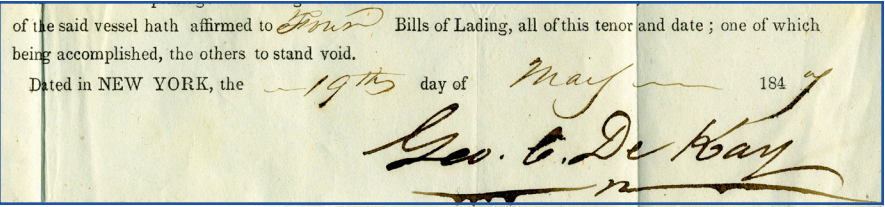 of the said vessel hath affirmed to Four Bills of Lading, all of this tenor and date ; one of which
being accomplished, the others to stand void.
Dated in NEW YORK, the 19th day of May 1847
Geo. C. De Kay